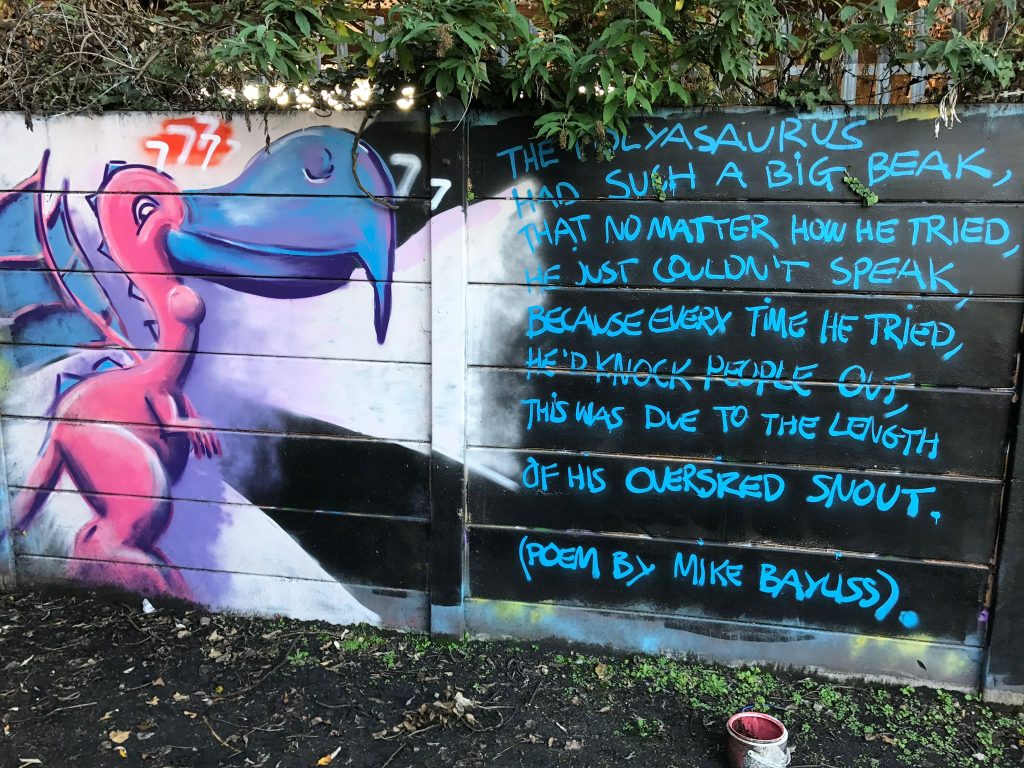 777
77
THE
HAD SUCH A BIG BEAK,
THAT NO MATTER HOW HE TRIED,
HE JUST COULDN'T SPEAK,
BECAUSE EVERY TIME HE TRIED,
HE'D KNOCK PEOPLE OUT,
THIS WAS DUE TO THE LENGTH
OF HIS OVERSIZED SNOUT.
(POEM BY MIKE BAYLISS).